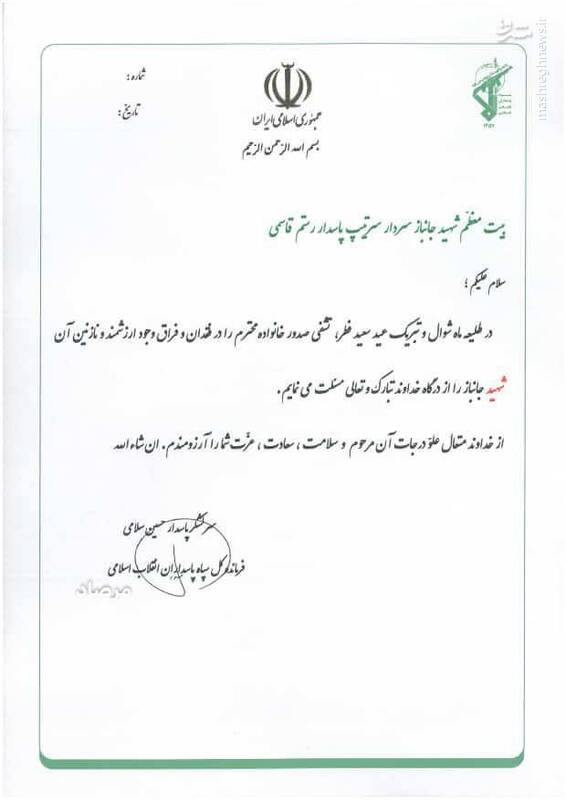 مشرق
mashreghnews.ir
شماره:
تاریخ:
جمهوری اسلامی ایران
بسم الله الرحمن الرحیم
۱۳۵۷
بیت معظّم شهید جانباز سردار سرتیپ پاسدار رستم قاسمی
سلام علیکم؛
در طلیعه ماه شوال و تبریک عید سعید فطر، تشفی صدور خانواده محترم را در فقدان و فراق وجود ارزشمند و نازنین آن
شهید جانباز را از درگاه خداوند تبارک و تعالی مسئلت می نمایم.
از خداوند متعال علوّ درجات آن مرحوم و سلامت، سعادت، عزّت شما را آرزومندم. ان شاء الله
سرلشکر پاسدار حسین سلامی
فرمانده کل سپاه پاسداران انقلاب اسلامی
مرصاد